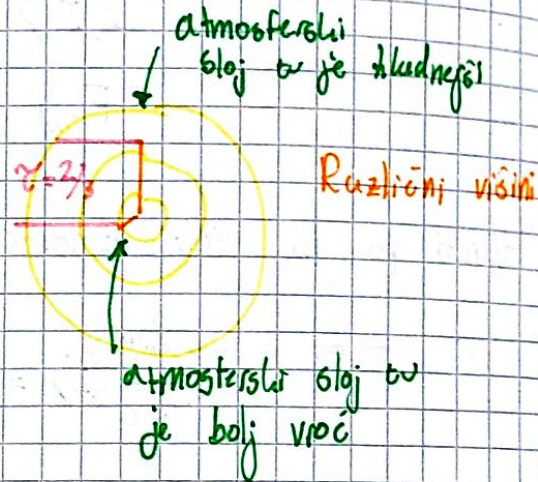 atmosferski
sloj tu je hladnejši
τ = 2/3
Različni višini
atmosferski sloj tu
je bolj vroč